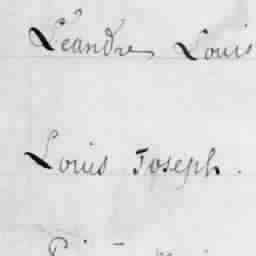 Léandre Louis
Louis Joseph.